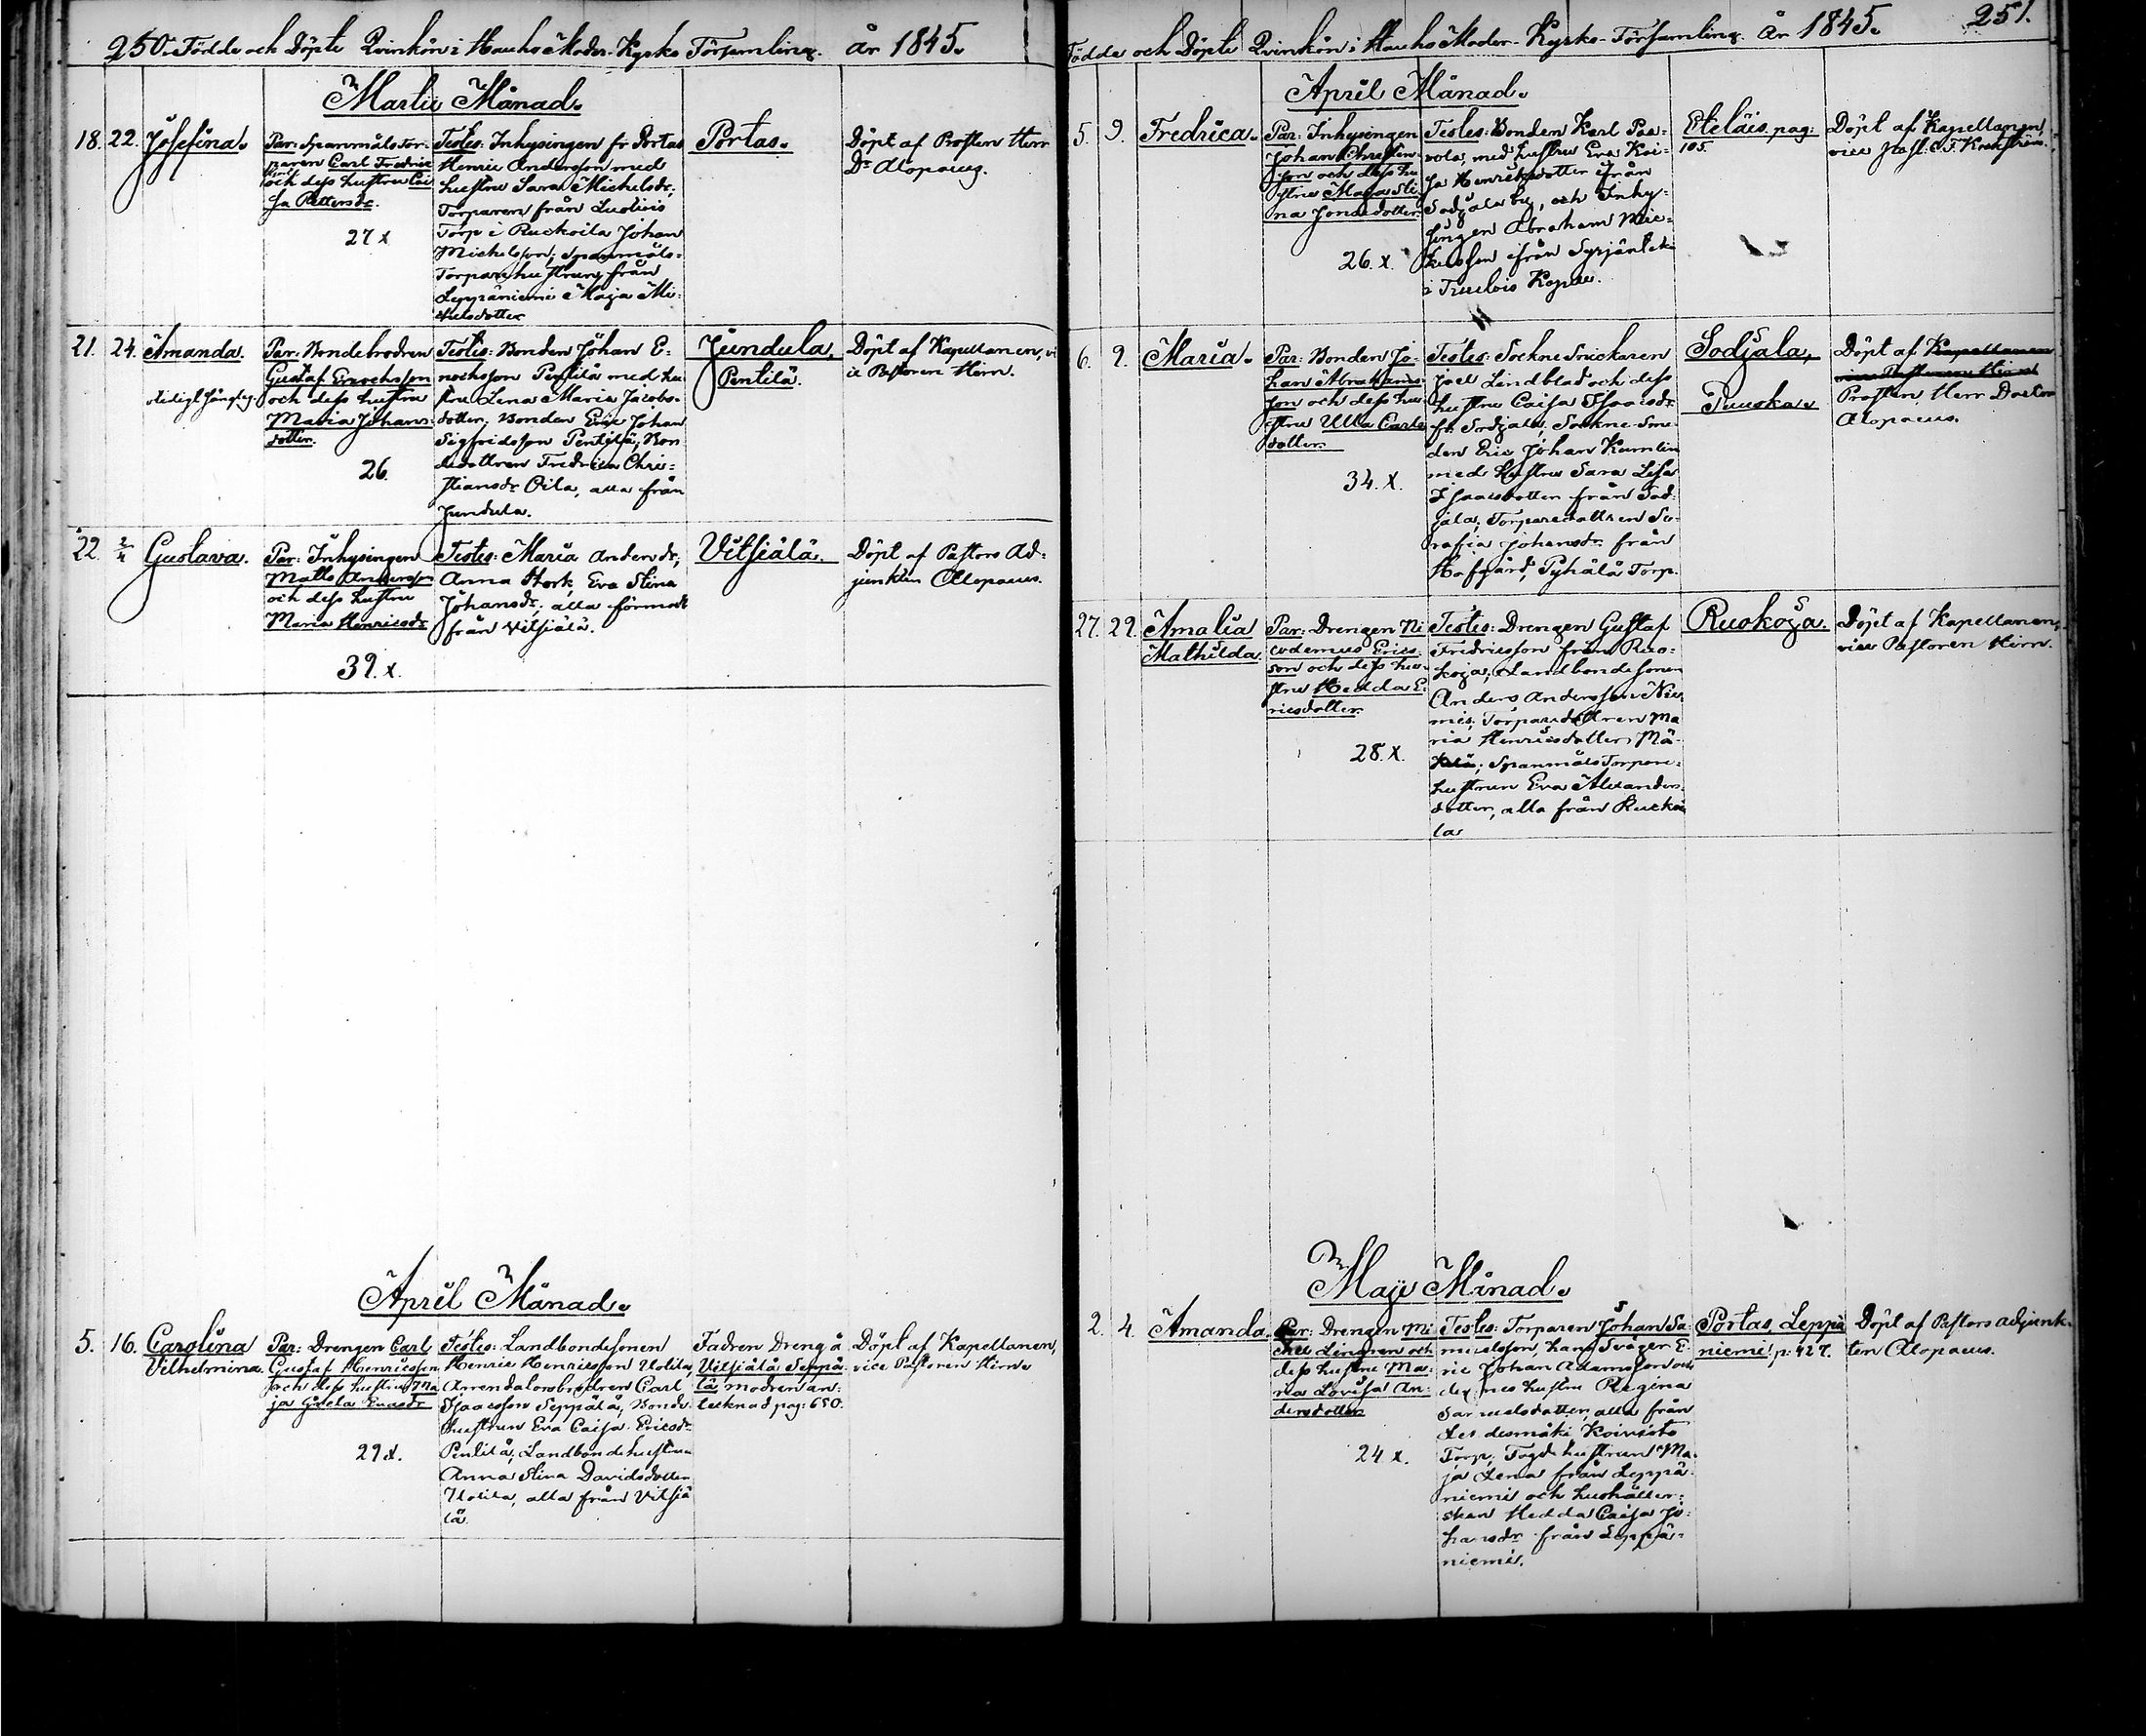 250. Födde och Döpte Qvinkön i Hauho Moder-Kyrko Församling. År 1845.
Martii Månad.
18. 22. Josefina.
Par: Spanmåls Tor-
paren Carl Fredric
och dess hustru Cai
sa Pettersdr.
27 x
Testes: Inhysingen fr Portas
Henric Andersson med
hustru Sara Michelsdr;
Torparen från Ludvics
Torp i Ruckoila Johan
Michelsson; Spanmåls-
Torpare hustrun från
Leppäniemi Maja Mi-
chelsdotter
Portas.
Döpt af Prosten Herr
Dr Alopaeus.
21. 24. Amanda.
Par: Bondebrodren
Gustaf Enochsson
och dess hustru
Maria Johans-
dotter.
26.
Testes: Bonden Johan E-
nochsson Penttilä med hu
stru Lena Maria Jacobs-
dotter; Bonden Eric Johan
Sigfridsson Penttilä; Bon
dedottren Fredrica Chri-
stiansdr Oila, alla från
Jundula.
Jundula,
Pentilä.
Döpt af Kapellanen, vi
ce Pastoren Hirn.
22. 2/4 Gustava.
Par: Inhysingen
Matts Andersson
och dess hustru
Maria Henricsdr
39. x.
Testes: Maria Andersdr,
Anna Stork, Eva Stina
Johansdr; alla
från Vitsiälä.
Vitsiälä.
Döpt af Pastors Ad-
junkten Alopaeus.
April Månad.
5. 16. Carolina
Vilhelmina.
Par: Drengen Carl
Gustaf Henricsson
och dess hustru Ma
ja Ericsdr
29 x.
Testes: Landbondesonen
Henric Henricsson Uotila,
Arrendatorsbrodren Carl
Isaacsson Seppälä, Bonde
hustrun Eva Caisa Ericsdr
Pentilä, Landbondehustrun
Anna Stina Davidsdotter
Uotila, alla från Vitsiä
lä.
Fadren Dreng å
Vitsiälä Seppä
lä, modren an-
tecknad pag: 650.
Döpt af Kapellanen,
vice Pastoren Hirn.
Födde och Döpte Qvinkön i Hauho Moder-Kyrko-Församling. År 1845. 251.
April Månad.
5. 9. Fredrica.
Par: Inhysingen
Johan Christens-
son och dess hu
stru Maja Sti-
na Jonasdotter.
26. x.
Testes: Bonden Karl Paa-
vola, med hustru Eva Kai-
sa Henricsdotter ifrån
Sodjala by, och Inhy-
singen Abraham Mic-
kelsson ifrån
i Tuulois Kapell.
Eteläis, pag:
105.
Döpt af Kapellanen,
vice Past.
6. 9. Maria.
Par: Bonden Jo-
han Abrahams-
son och dess hu-
stru Ulla Carls
dotter.
34. x.
Testes: Sockne Snickaren
Joel Lindblad och dess
hustru Caisa Isaacsdr
fr Sodjala, Sockne-Sme-
den Eric Johan Kumlin
med hustru Sara Lisa
Isaacsdotter från Sod-
jala, Torparedottren Se-
rafia Johansdr från
Hofgård, Pyhälä Torp.
Sodjala,
Puuska.
Döpt af Kapellanen
vice Pastoren Hirn
Prosten Herr Doctor
Alopaeus.
27. 29. Amalia
Mathilda.
Par: Drengen Ni
codemus Erics-
son och dess hu-
stru Hedda E-
ricsdotter.
28. x.
Testes: Drengen Gustaf
Fredricsson från Ruo-
koja, Landbondesonen
Anders Andersson Nie-
mis, Torparedottren Ma
ria Henricsdotter Mä-
kelä; Spanmåls Torpare-
hustrun Eva Alexanders-
dotter, alla från Ruckoi
la
Ruokoja.
Döpt af Kapellanen,
vice Pastoren Hirn.
Maji Månad.
2. 4. Amanda.
Par: Drengen Mi
chel Lindgren och
dess hustru Ma-
ria Lovisa An-
dersdotter
24 x.
Testes: Torparen Johan Sa-
muelsson, hans Svåger E-
ric Johan Adamsson och
dennes hustru Regina
Samuelsdotter, alla från
Koivisto
Torp, Fogde hustrun Ma-
ja Lena från Leppä-
niemi och hushåller-
skan Hedda Caisa Jo-
hansdr från Leppä-
niemi.
Portas, Leppä
niemi, p: 427.
Döpt af Pastors adjunk-
ten Alopaeus.